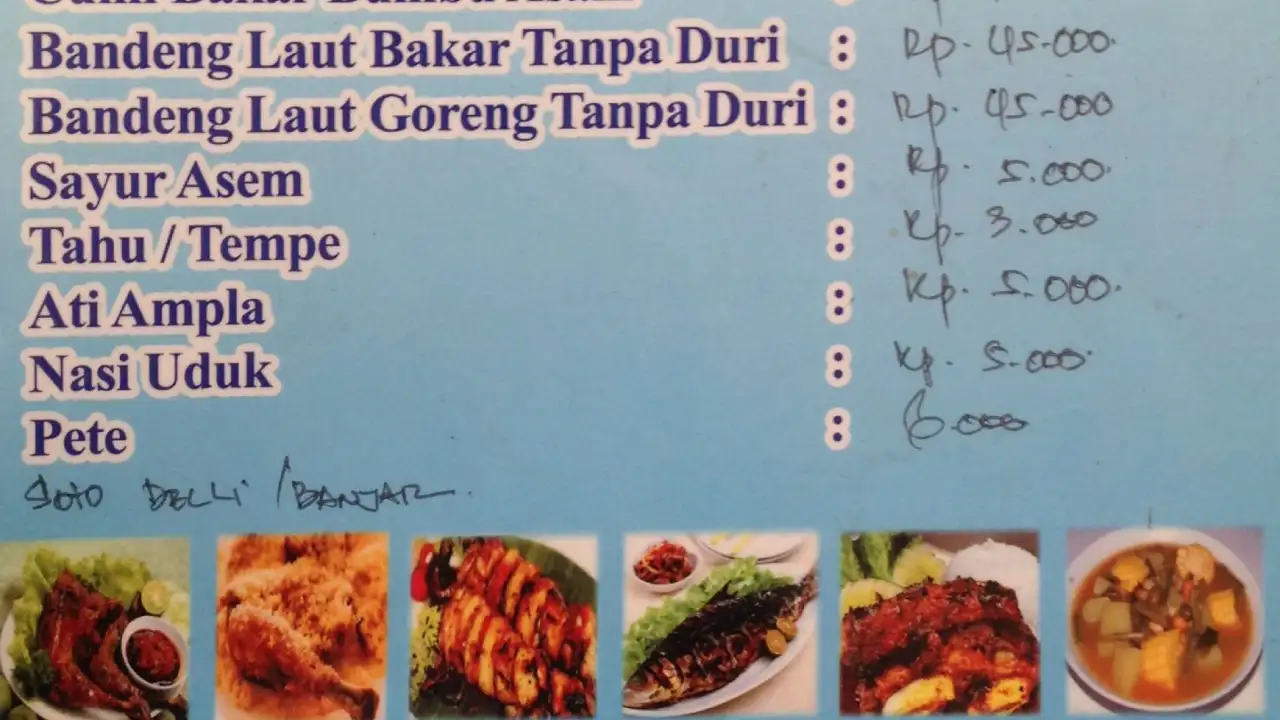 Bandeng Laut Bakar Tanpa Duri : Rp. 45.000.
Bandeng Laut Goreng Tanpa Duri : Rp. 45.000
Sayur Asem : Rp. 5.000.
Tahu / Tempe : Rp. 3.000
Ati Ampla : Rp. 5.000.
Nasi Uduk : Rp. 5.000.
Pete : 6.000
SOTO DELLI / BANJAR.